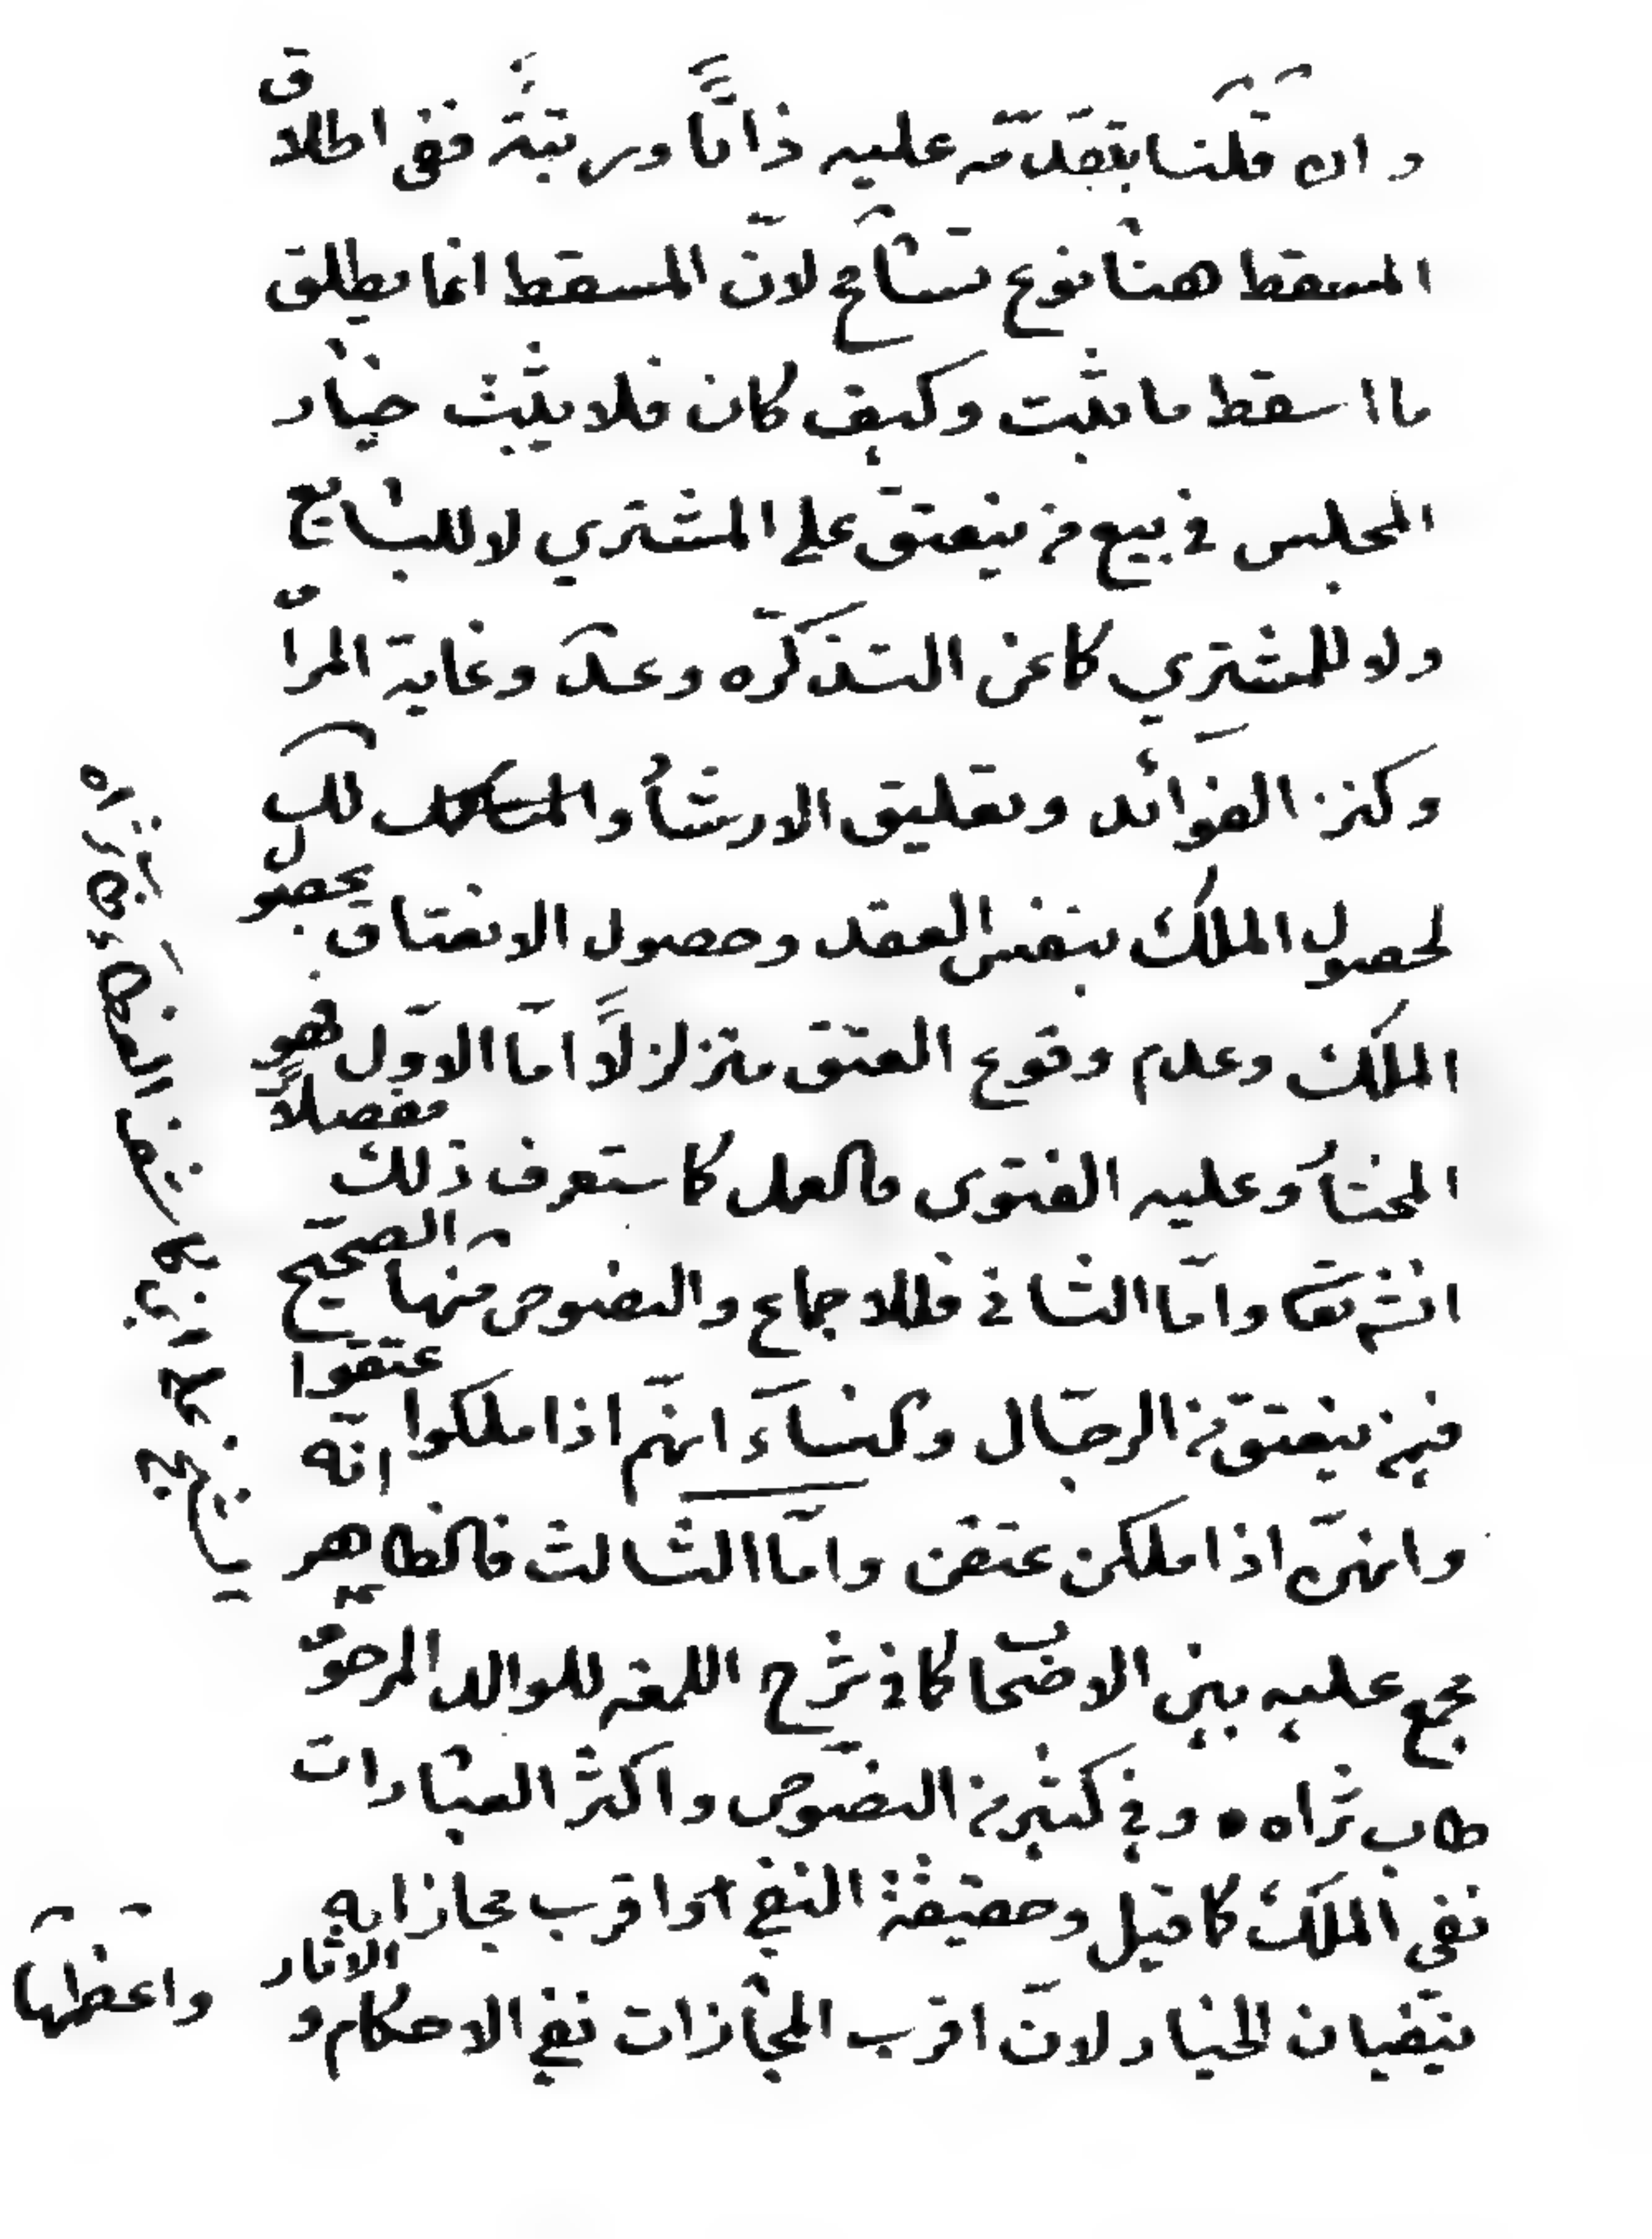 وان قلنا بتقدّمه عليه ذاتًا ورتبةً ففى اطلاق
المسقط هنا نوع تسامح لانّ المسقط انما يطلق
ما اسقط ما يثبت وكيف كان فلا يثبت خيار
المجلس في بيع من ينعتق على المشتري لا للبايع
ولا للمشتري كما عن التذكره وعد وغاية المرام
وكنز الفوائد وتعليق الارشاد والمسالك
لحصول الملك بنفس العقد وحصول الانعتاق بحصول
الملك وعدم وقوع العتق متزلزلاً امّا الاوّل فهو
المختار وعليه الفتوى والعمل كما ستعرف ذلك مفصلاً
انشا تعا وامّا الثاني فللاجماع والنصوص منها الصحيح
فيمن ينعتق من الرجال والنساء انهم اذا ملكوا عتقوا
وانهنّ اذا ملكن عتقن وامّا الثالث فالظاهر انّه
مجمع عليه بين الاصحاب كما في شرح اللمعه للوالد المرحوم
طاب ثراه وفي كثير من النصوص واكثر العبارات
نفى الملك كما قيل وحقيقة النفي او اقرب مجازاته
ينفيان الخيار لانّ اقرب المجازات نفي الاحكام و الاثار
واعظمها
الشيخ على ابن كاشف الغطاء طاب ثراه